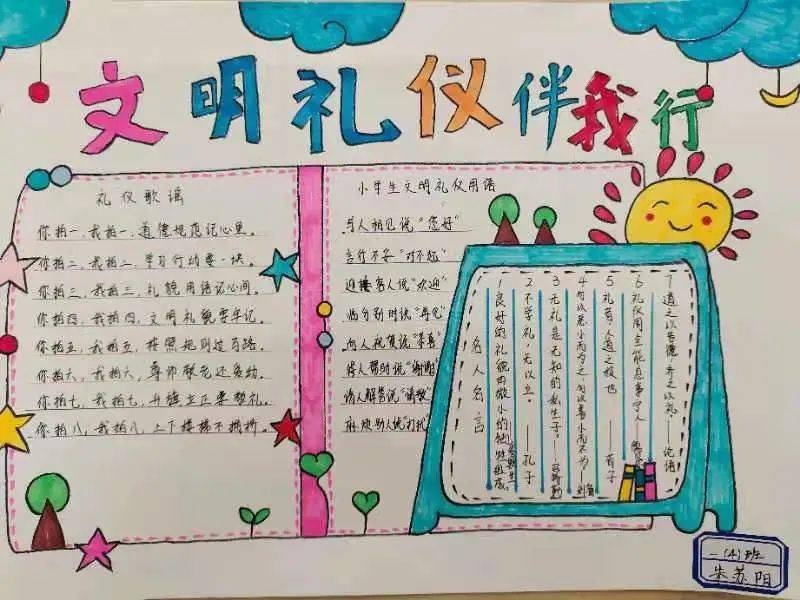 文明礼仪伴我行
礼仪歌谣
你拍一,我拍一,道德规范记心里。
你拍二,我拍二,学习行动要一块。
你拍三,我拍三,礼貌用语记心间。
你拍四,我拍四,文明礼貌要牢记。
你拍五,我拍五,按照规则过马路。
你拍六,我拍六,尊师敬老还爱幼。
你拍七,我拍七,升旗立正要敬礼。
你拍八,我拍八,上下楼梯不拥挤。
小学生文明礼仪用语
与人相见说“您好”
言行不妥“对不起”
迎接客人说“欢迎”
临分别时说“再见”
向人祝贺说“恭喜”
得人帮时说“谢谢”
请人解答说“请教”
麻烦别人说“打扰
名人名言
1 良好的礼貌由微小的牺牲组成。
2 不学礼,无以立。——孔子
3 无礼是无知的私生子。
4 勿以恶小而为之,勿以善小而不为——刘备
5 礼者,人道之极也——荀子
6 礼仪周全能息事宁人
7 道之以德,齐之以礼。——论语
一(4)班
朱苏阳